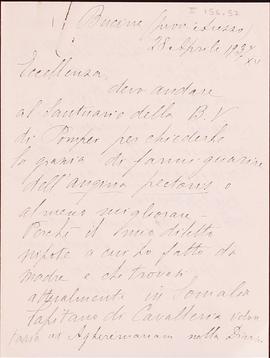 I 156.52
Bucine (prov. Arezzo)
28 Aprile 1937
XV
Eccellenza
devo andare
al Santuario della B. V
di Pompei per chiederle
la grazia di farmi guarire
dell'angina pectoris o
almeno migliorare -
Perchè il mio diletto
nipote a cui ho fatto da
madre e che trovasi
attualmente in Somalia
Capitano di Cavalleria volon
tario ad Agheremariam nella